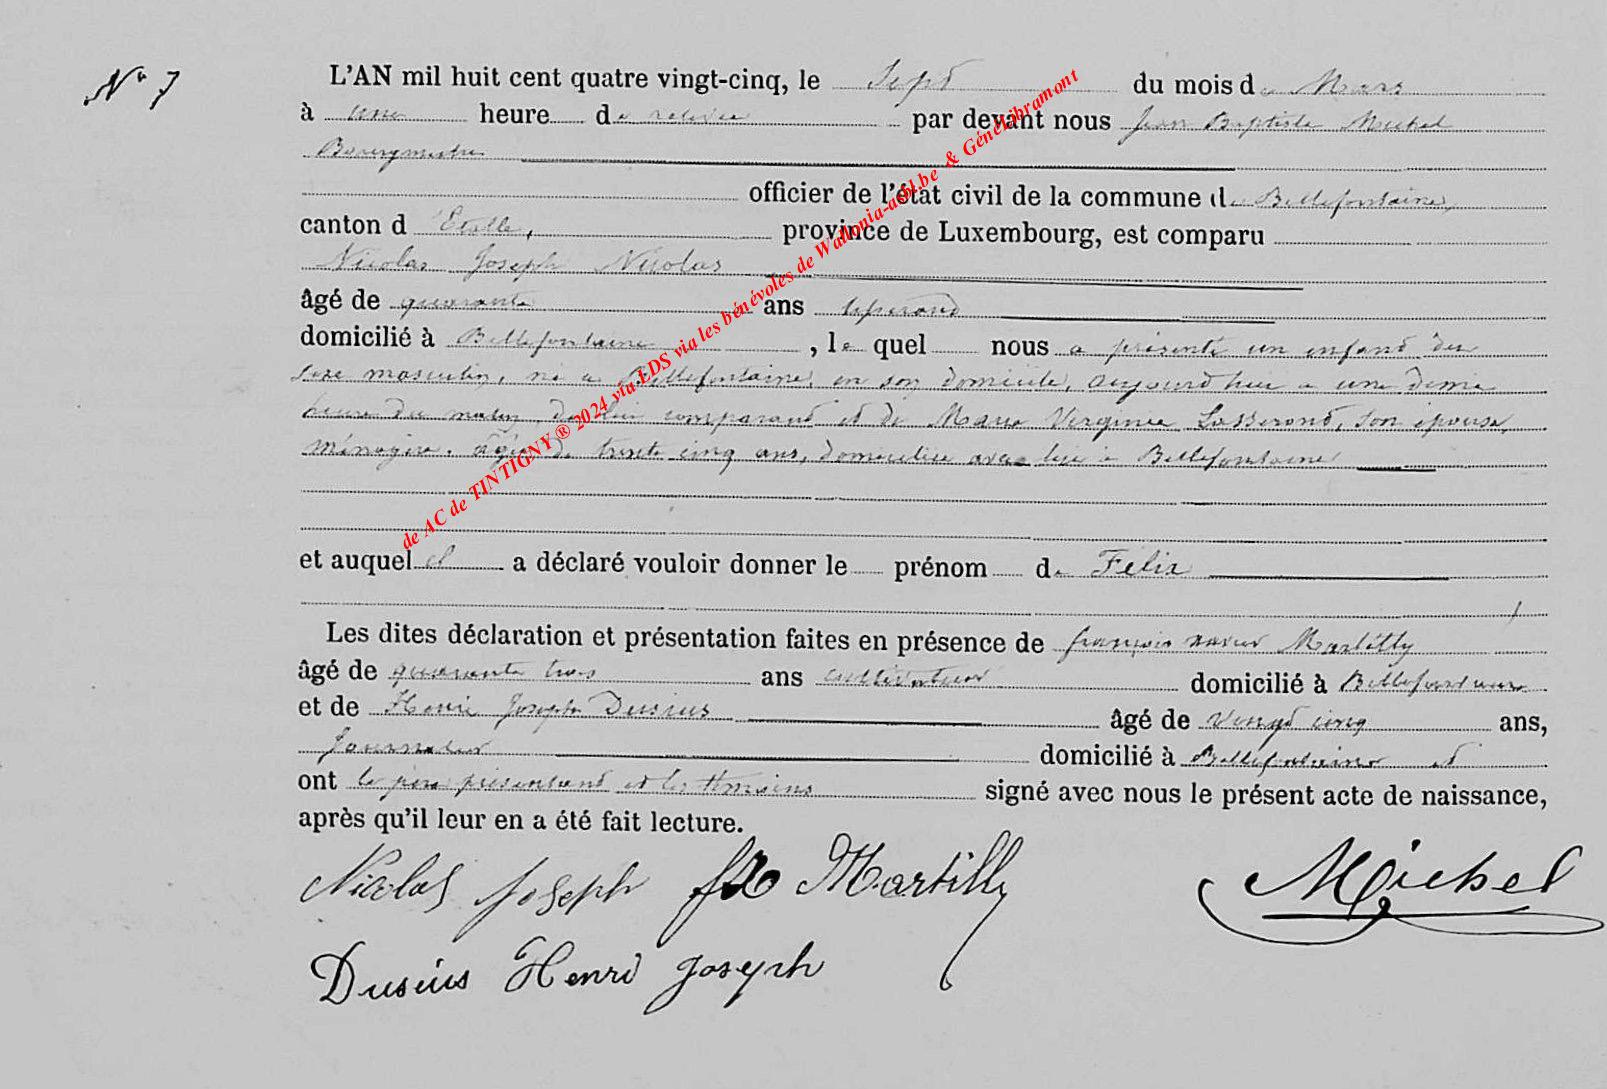 Nº 7
L'AN mil huit cent quatre vingt-cinq, le Sept du mois de Mars
à une heure de relevée par devant nous Jean Baptiste Michel
Bourgmestre
officier de l'état civil de la commune de Bellefontaine,
canton d'Etalle, province de Luxembourg, est comparu
Nicolas Joseph Nicolas
âgé de quarante ans
domicilié à Bellefontaine, le quel nous a présenté un enfant du
sexe masculin, né à Bellefontaine, en son domicile, aujourd'hui à une demie
heure du matin, de lui comparant et de Marie Virginie Lasserond, son épouse,
ménagère, âgée de trente cinq ans, domiciliée avec lui à Bellefontaine
et auquel il a déclaré vouloir donner le prénom de Félix
Les dites déclaration et présentation faites en présence de françois xavier Martilly
âgé de quarante trois ans cultivateur domicilié à Bellefontaine
et de Henri Joseph Dusius âgé de vingt cinq ans,
Journalier domicilié à Bellefontaine et
ont le père présentant et les témoins signé avec nous le présent acte de naissance,
après qu'il leur en a été fait lecture.
Nicolas Joseph fx Martilly Michel
Dusius Henri Joseph
de AC de TINTIGNY ® 2024 via EDS via les bénévoles de Wallonia-asbl.be & GénéLibramont